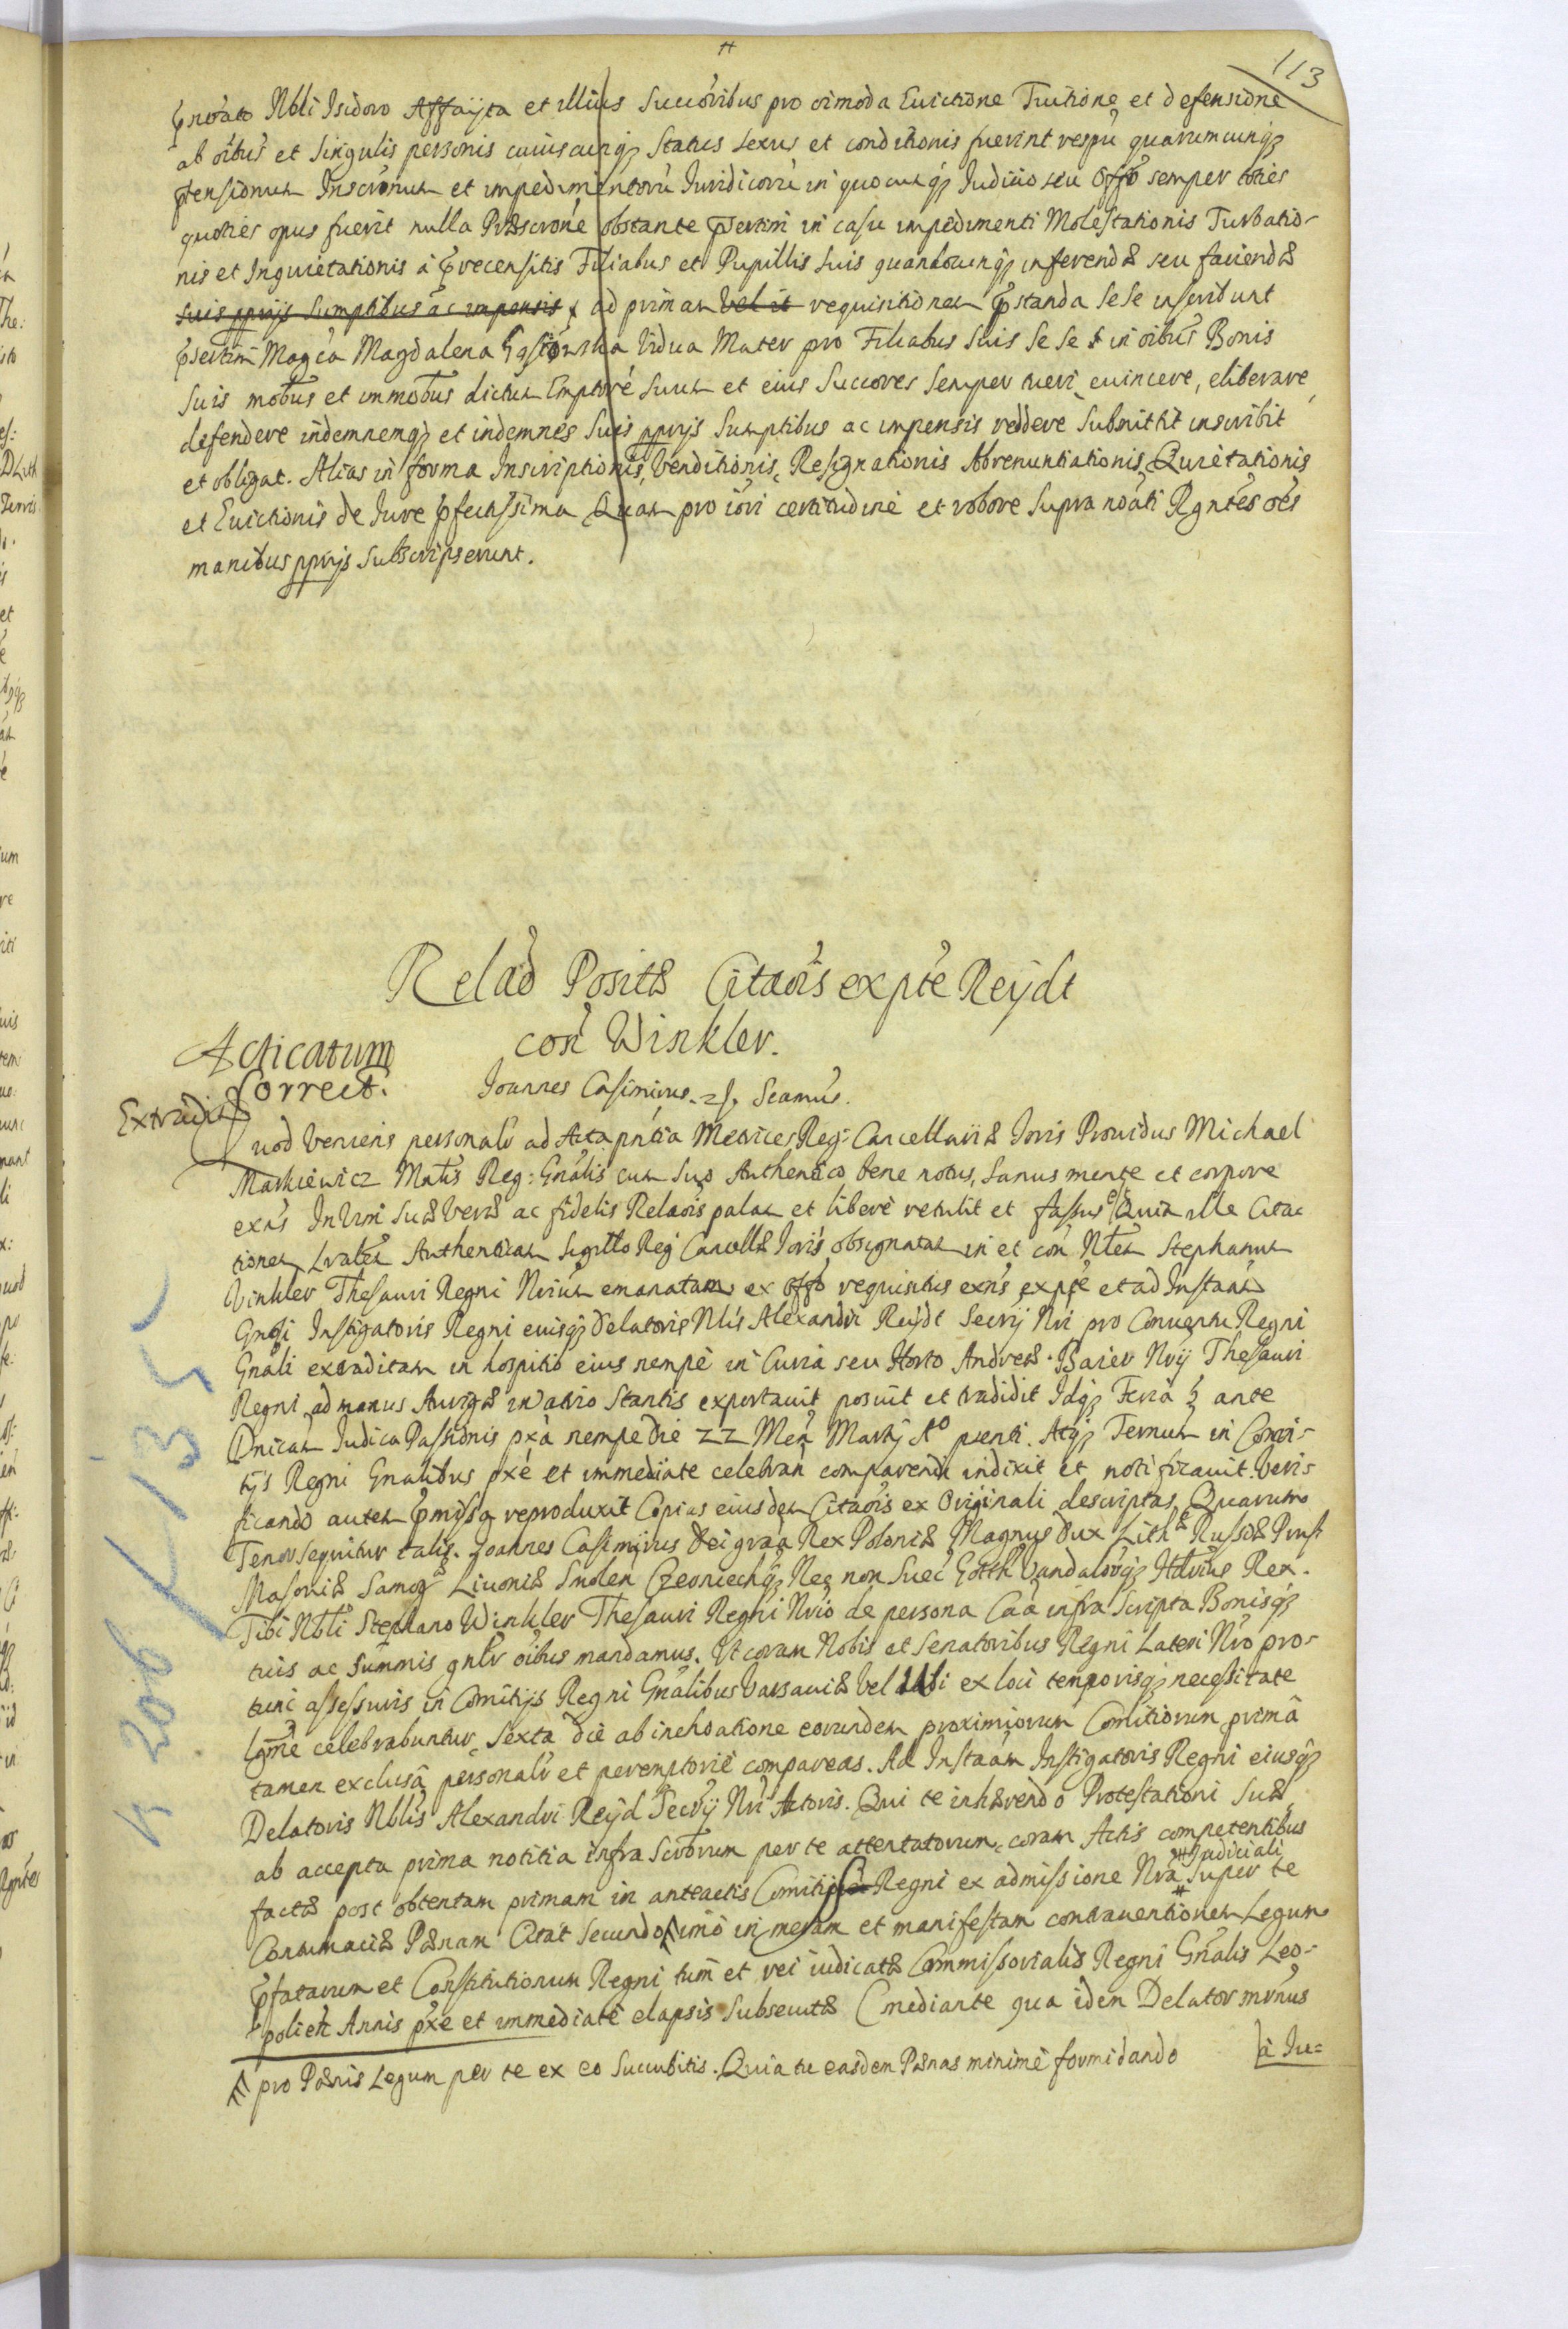 113
pnoato Nbli Isidoro Affayta et illius Succoribus pro oimoda Evictione Tuitione et defensione
ab oibus et singulis personis cuiuscunq3 Status sexus et conditionis fuerint respu quarumcunq3
ptensionum Inscronum et impedimentoru Iuridicoru in quocunq3 Iudicio seu Offo semper toties
quoties opus fuerit nulla Præscrone obstante psertim in casu impedimenti Molestationis Turbatio-
nis et Inquietationis à precensitis Filiabus et Pupillis suis quandocunq3 inferendæ seu faciendæ
suis pprijs sumptibus ac impensis ad primam vel it requisitionem pstanda sese inscribunt
psertim Magca Magdalena Vidua Mater pro Filiabus suis se se in oibus Bonis
suis mobus et immobus dictum Emptore suum et eius Succores semper tueri evincere, eliberare
defendere indemnemq3 et indemnes suis pprijs Sumptibus ac impensis reddere submittit inscribit
et obligat. Alias in forma Inscriptionis, Venditionis, Resignationis Abrenuntiationis, Quietationis
et Evictionis de Iure pfectissima Quam pro iori certitudine et robore supra noati Rgntes oes
manibus pprijs subscripserunt.
Relao Positæ Citaois ex pte Reydt
con Winkler.
Acticatum
Correct.
Extradit
Joannes Casimirus. Scamus.
Quod veniens personalr ad Acta pntia Metrices Reg: Cancellariæ Ioris Providus Michael
Markiewicz Mattis Reg: Gnalis cum suo Authentico bene notus, sanus mente et corpore
exns In Vim suæ veræ ac fidelis Relaois palam et libere retulit et fassus e Quia ille Citac
tionem Lratem Authenticam sigillo Reg Cancellæ Ioris obsignatam in et con Nblem Stephanum
Vinkler Thesauri Regni Nrium emanatam ex Offo requisitus exns ex pte et ad Instam
Gnosi Instigatoris Regni eiusq3 Delatoris Nblis Alexandri Reydt Secrij Nri pro Conventu Regni
Gnali extraditam in hospitio eius nempe in Curia seu Horto Andreæ Baier Nrij Thesauri
Regni ad manus Aurigæ in atrio stantis exportavit posuit et tradidit Idq3 Feria ante
Dnicam Iudica Passionis pxa nempe Die 22 Mea Martij Ao pnti. Atq3 Termum in Comi-
tijs Regni Gnalibus pxe et immediate celebran comparendi indixit et notificavit. Veri-
ficando autem pmissa reproduxit Copias eiusdem Citaois ex Originali descriptas, Quarum
Tenor sequitur talis. Joannes Casimirus Dei graa Rex Poloniæ Magnus Dux Lithæ Russiæ Pruss
Masoviæ Samog Livoniæ Smolen Czerniechq3 Nec non Suec Gotth Vandalorq3 Hdrius Rex.
Tibi Nbli Stephano Winkler Thesauri Regni Nrio de persona Caa infra scripta Bonisq3
tuis ac summis gnlr oibus mandamus. Ut coram Nobis et Senatoribus Regni Lateri Nro pro-
tunc assessuris in Comitijs Regni Gnalibus Varsaviæ vel Ubi ex loci temporisq3 necessitate
lgme celebrabuntur, Sexta die ab inchoatione eorundem proximiorum Comitiorum primâ
tamen exclusâ personalr et peremptoriè compareas. Ad Instaam Instigatoris Regni eiusq3
Delatoris Nblis Alexandri Reyd Secrij Nri Actoris. Qui te inhærendo Protestationi suæ
ab accepta prima notitia infra scrorum per te attentatorum, coram Actis competentibus
factæ post obtentam primam in anteactis Comitijs Regni ex admissione Nra Iudiciali super te
Contumaciæ Pænam Citat secundo imò in meram et manifestam contraventionem Legum
pfatarum et Constitutionum Regni tum et rei iudicatæ Commissorialis Regni Gnalis Leo-
polien Annis pxe et immediatè elapsis subsecutæ (mediante qua idem Delator munus
pro Pænis Legum per te ex eo succubitis. Quia tu easdem Pænas minimè formidando
à Iu=
K 206 L 135